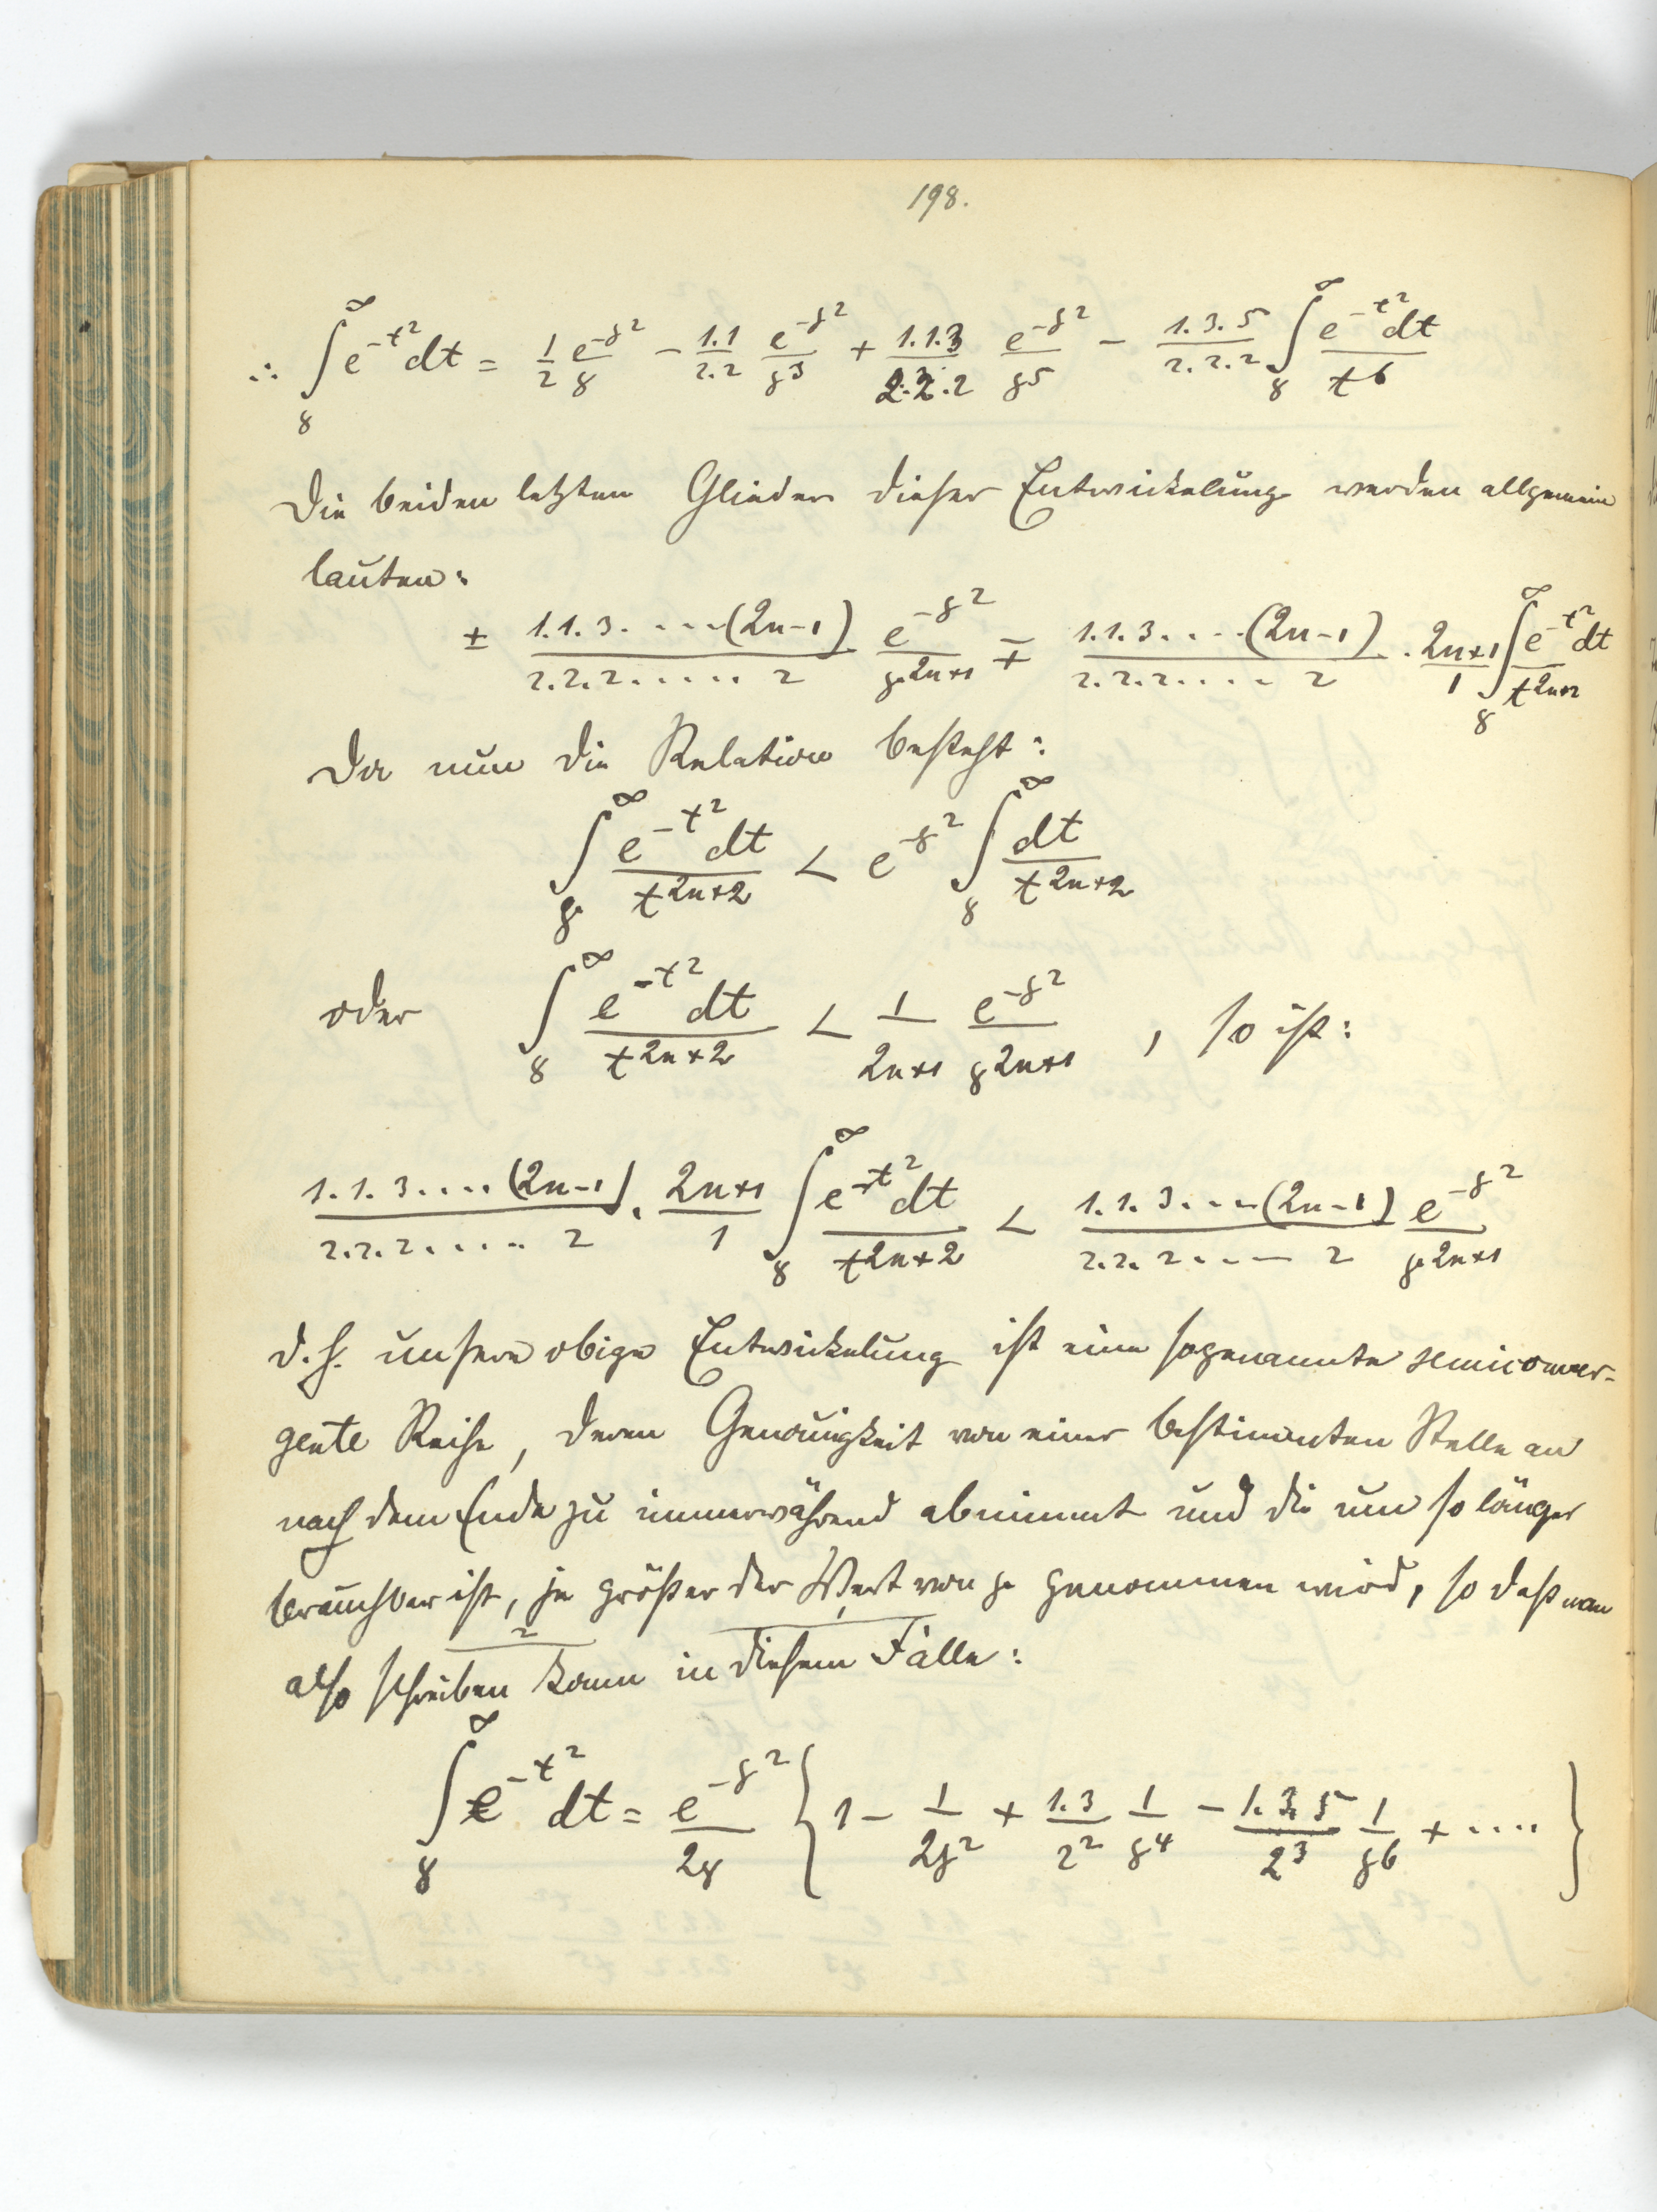 198.
∴ ∫_γ^∞ e^{-t²} dt = 1/2 e^{-γ²}/γ - 1.1/2.2 e^{-γ²}/γ³ + 1.1.3/2.2.2 e^{-γ²}/γ⁵ - 1.3.5/2.2.2 ∫_γ^∞ e^{-t²}dt/t⁶
Die beiden letzten Glieder dieser Entwickelung werden allgemein
lauten:
± 1.1.3. ....(2n-1)/2.2.2. .... 2 e^{-γ²}/γ^{2n+1} ∓ 1.1.3. ...(2n-1)/2.2.2. .... 2 . 2n+1/1 ∫_γ^∞ e^{-t²}dt/t^{2n+2}
Da nun die Relation besteht:
∫_γ^∞ e^{-t²}dt/t^{2n+2} < e^{-γ²} ∫_γ^∞ dt/t^{2n+2}
oder ∫_γ^∞ e^{-t²}dt/t^{2n+2} < 1/2n+1 e^{-γ²}/γ^{2n+1} , so ist:
1.1.3....(2n-1)/2.2.2..... 2 . 2n+1/1 ∫_γ^∞ e^{-t²}dt/t^{2n+2} < 1.1.3....(2n-1)/2.2.2.... 2 e^{-γ²}/γ^{2n+1}
d.h. unsere obige Entwickelung ist eine sogenannte semiconver-
gente Reihe, deren Genauigkeit von einer bestimmten Stelle an
nach dem Ende zu immerwährend abnimmt und die um so länger
brauchbar ist, je größer der Wert von γ genommen wird, so daß man
also schreiben kann in diesem Falle:
∫_γ^∞ e^{-t²} dt = e^{-γ²}/2γ {1 - 1/2γ² + 1.3/2² 1/γ⁴ - 1.3.5/2³ 1/γ⁶ + ....}